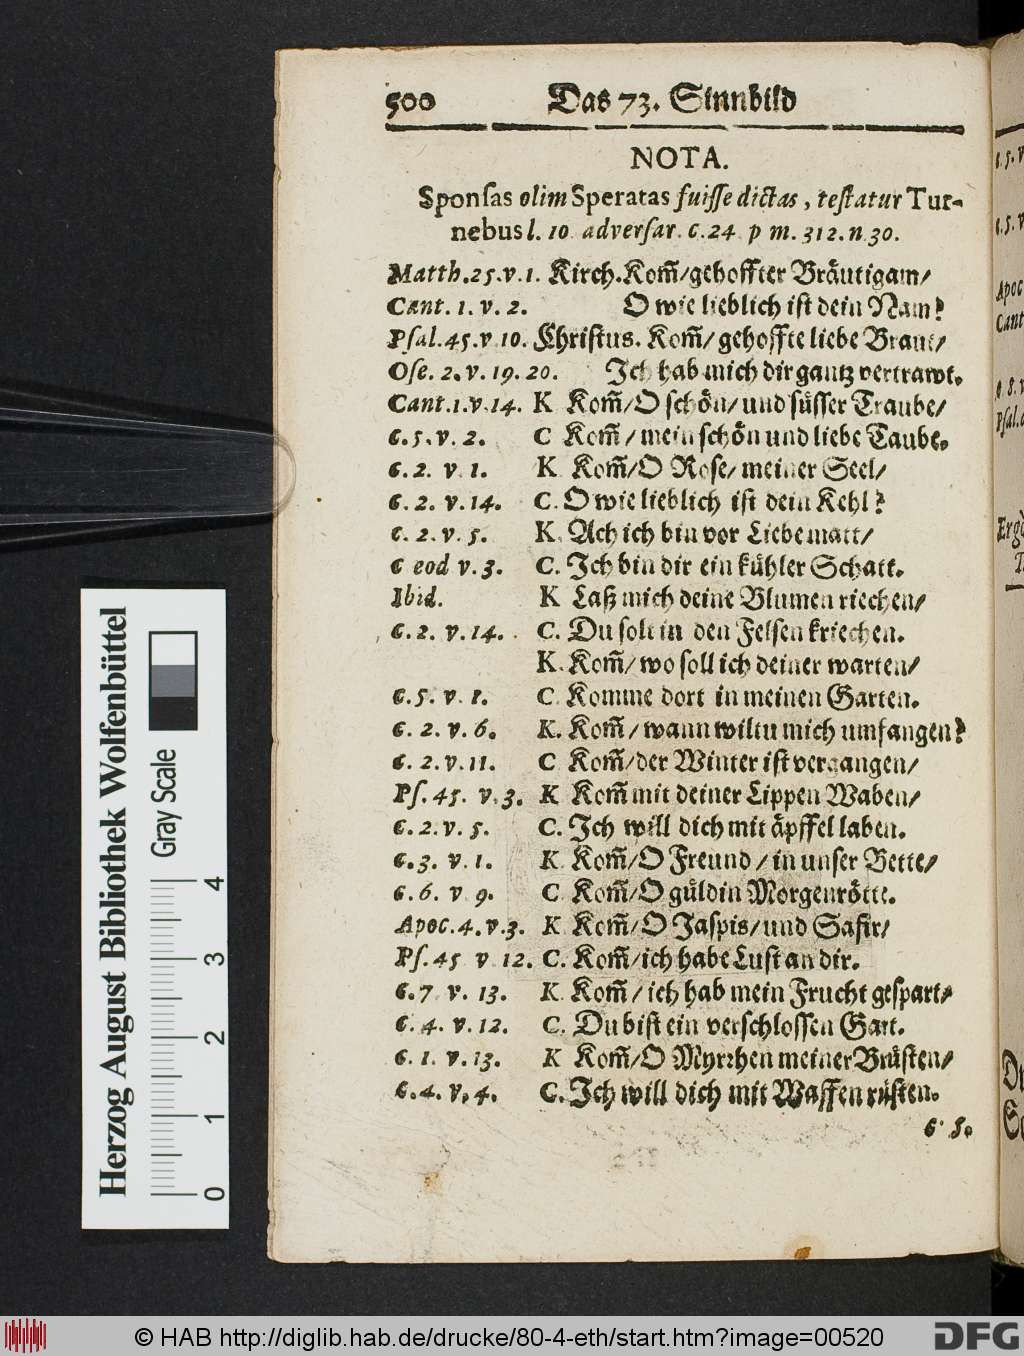 500 Das 73. Sinnbild
NOTA.
Sponſas olim Speratas fuiſſe dictas, teſtatur Tur-
nebus l. 10 adverſar. c. 24. p m. 312. n. 30.
Matth. 25. v. 1. Kirch. Kom̃/ gehoffter Bräutigam/
Cant. 1. v. 2. O wie lieblich iſt dein Nam?
Pſal. 45. v 10. Chriſtus. Kom̃/ gehoffte liebe Braut/
Oſe. 2. v. 19. 20. Ich hab mich dir gantz vertrawt.
Cant. 1. v. 14. K Kom̃/ O ſchön/ und ſüſſer Traube/
c. 5. v. 2. C Kom̃/ mein ſchön und liebe Taube.
c. 2. v. 1. K Kom̃/ O Roſe/ meiner Seel/
c. 2. v. 14. C. O wie lieblich iſt dein Kehl?
c. 2. v. 5. K. Ach ich bin vor Liebe matt/
c eod v. 3. C. Ich bin dir ein kühler Schatt.
Ibid. K Laß mich deine Blumen riechen/
c. 2. v. 14. C. Du ſolt in den Felſen kriechen.
K. Kom̃/ wo ſoll ich deiner warten/
c. 5. v. 1. C. Komme dort in meinen Garten.
c. 2. v. 6. K. Kom̃/ wann wiltu mich umfangen?
c. 2. v. 11. C Kom̃/ der Winter iſt vergangen/
Pſ. 45. v. 3. K Kom̃ mit deiner Lippen Waben/
c. 2. v. 5. C. Ich will dich mit äpffel laben.
c. 3. v. 1. K Kom̃/ O Freund/ in unſer Bette/
c. 6. v 9. C. Kom̃/ O güldin Morgenrötte.
Apoc. 4. v. 3. K Kom̃/ O Jaſpis/ und Safir/
Pſ. 45 v 12. C. Kom̃/ ich habe Luſt an dir.
c. 7 v. 13. K. Kom̃/ ich hab mein Frucht geſpart/
c. 4. v. 12. C. Du biſt ein verſchloſſen Gart.
c. 1. v. 13. K Kom̃/ O Myrrhen meiner Brüſten/
c. 4. v. 4. C. Ich will dich mit Waffen rüſten.
c 5.
Herzog August Bibliothek Wolfenbüttel
Gray Scale
0 1 2 3 4
© HAB http://diglib.hab.de/drucke/80-4-eth/start.htm?image=00520
DFG